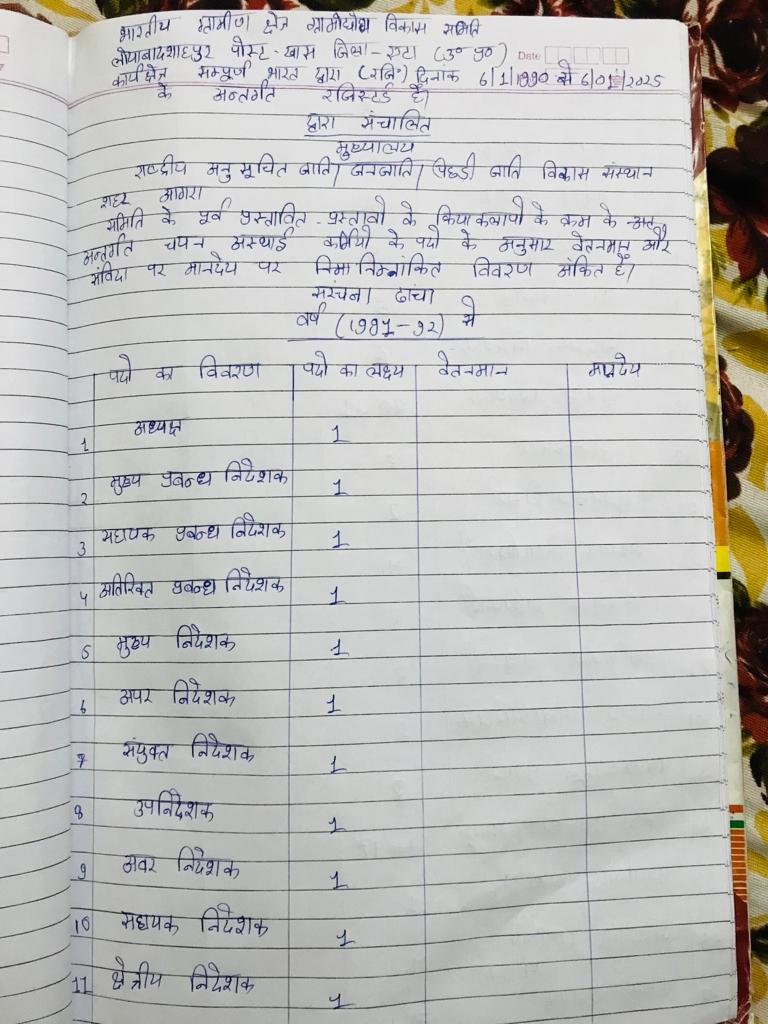 भारतीय ग्रामीण क्षेत्र ग्रामोद्योग विकास समिति
लोयाबादशाहपुर पोस्ट-खास जिला-एटा (उ०प्र०)
Date
कार्यक्षेत्र सम्पूर्ण भारत द्वारा (रजि०) दिनांक 6/1/1990 से 6/01/2025
के अन्तर्गत रजिस्टर्ड है।
द्वारा संचालित
मुख्यालय
राष्ट्रीय अनुसूचित जाति/जनजाति/पिछडी जाति विकास संस्थान
शहर आगरा
समिति के पूर्व प्रस्तावित प्रस्तावो के क्रियाकलापो के क्रम के
अन्तर्गत चयन अस्थाई कर्मियो के पदो के अनुसार वेतनमान और
संविदा पर मानदेय पर निम्नांकित विवरण अंकित है।
संरचना ढांचा
वर्ष (1991-92) से
पदो का विवरण पदो का लक्ष्य वेतनमान मानदेय
1 अध्यक्ष 1
2 मुख्य प्रबन्ध निदेशक 1
3 सहायक प्रबन्ध निदेशक 1
4 अतिरिक्त प्रबन्ध निदेशक 1
5 मुख्य निदेशक 1
6 अपर निदेशक 1
7 संयुक्त निदेशक 1
8 उपनिदेशक 1
9 अवर निदेशक 1
10 सहायक निदेशक 1
11 क्षेत्रीय निदेशक 1